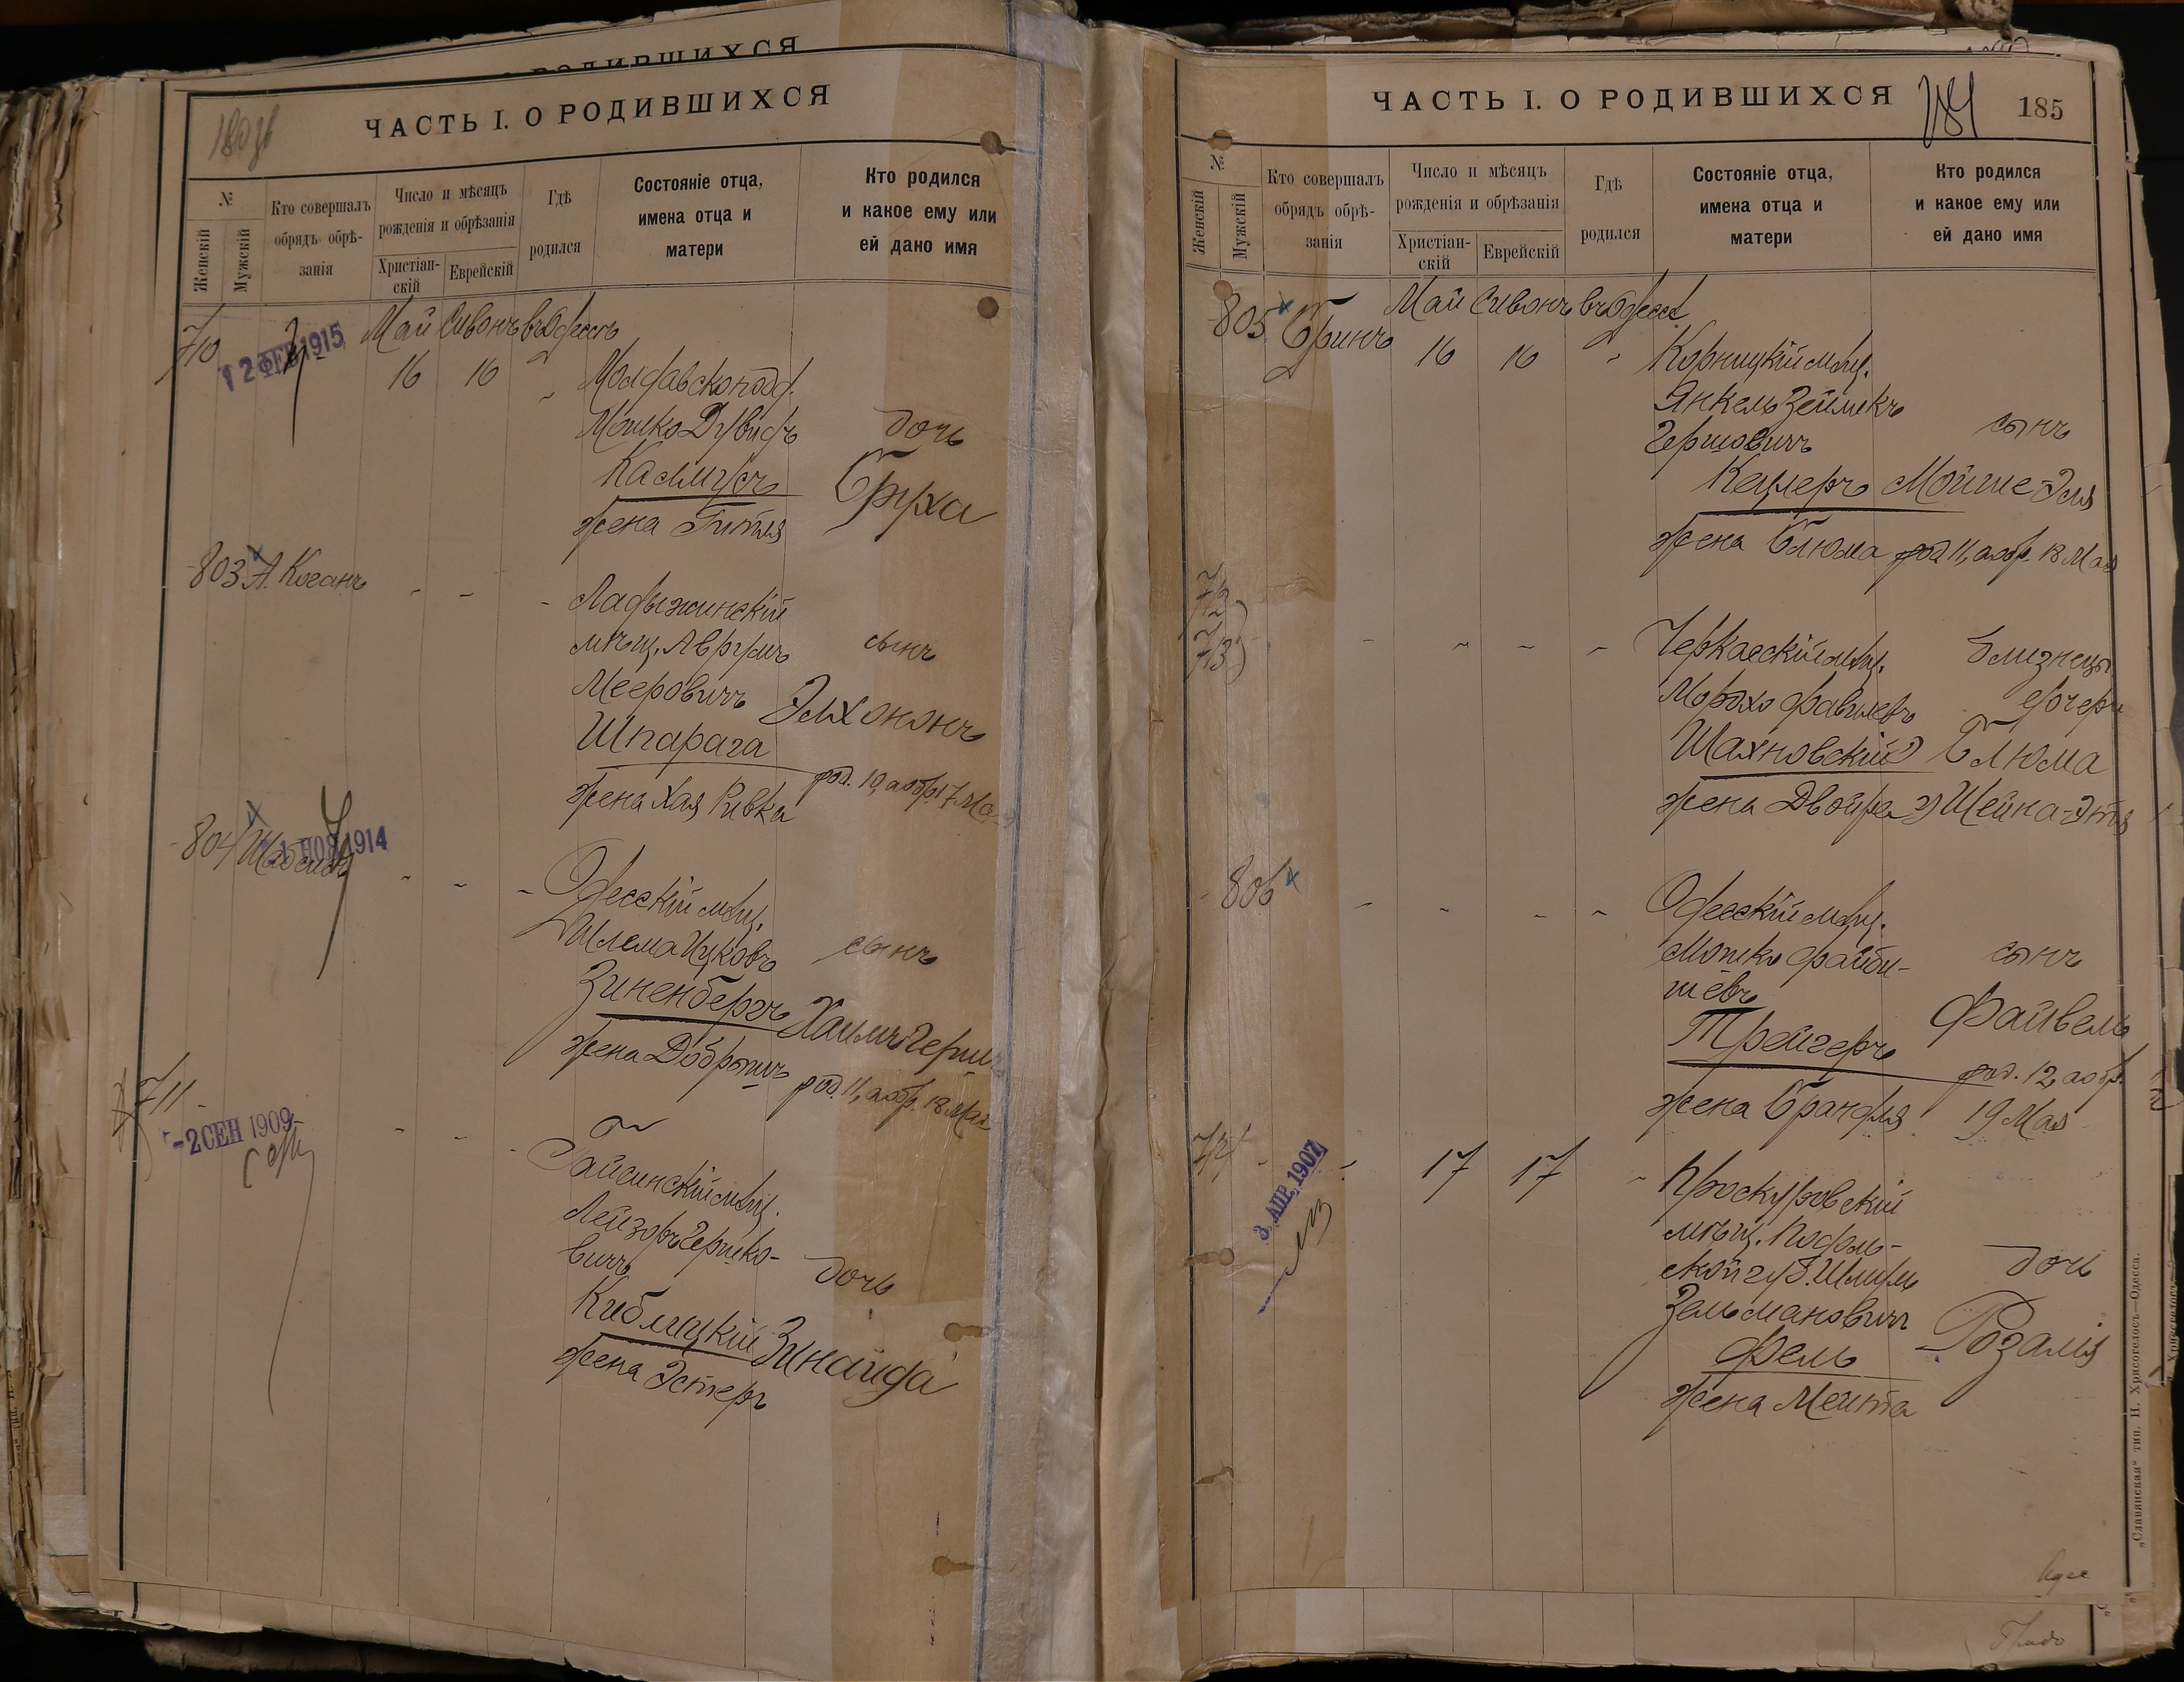 РОДИВШИХСЯ
ЧАСТЬ I. О РОДИВШИХСЯ
№
Женскій
Мужскій
Кто совершалъ
обрядъ обрѣ-
занія
Число и мѣсяцъ
рожденія и обрѣзанія
Христіан-
скій
Еврейскій
Гдѣ
родился
Состояніе отца,
имена отца и
матери
Кто родился
и какое ему или
ей дано имя
710
12 ФЕВ 1915
Май Сивонъ въ Одессѣ
16 16 "
Молдавскоподд.
Мошко Дувидъ
дочь
Калмусъ
Бруха
жена Гитля
803 А. Коганъ - - -
Ладыжинскій
мѣщ. Аврумъ
сынъ
Мееровичъ
Элхононъ
Шпарага
род. 10, а обр. 17 Мая
жена Хая Ривка
804
НОЯ 1914
- - -
Одесскій мѣщ.
Шлема Ицковъ
сынъ
Зиненбергъ
Хаимъ Герш
жена Добрышъ
род. 11, а обр. 18 Мая
711
-2 СЕН 1909
- - -
Гайсинскій мѣщ.
Лейзоръ Гершко-
вичъ
дочь
Киблицкій
Зинаида
жена Эстеръ
ЧАСТЬ I. О РОДИВШИХСЯ
185
№
Женскій
Мужскій
Кто совершалъ
обрядъ обрѣ-
занія
Число и мѣсяцъ
рожденія и обрѣзанія
Христіан-
скій
Еврейскій
Гдѣ
родился
Состояніе отца,
имена отца и
матери
Кто родился
и какое ему или
ей дано имя
805 Бринъ
Май Сивонъ въ Одессѣ
16 16 "
Корницкій мѣщ.
Янкель Зейликъ
Гершовичъ
сынъ
Кецлеръ
Мойше-Эля
жена Блюма
род. 11, а обр. 18 Мая
712
713
- - - -
Черкасскій мѣщ.
Близнецы
Мордхо Фавишевъ
дочери
Шахновскій
1) Блюма
жена Двойра
2) Шейна-Этя
806 - - - -
Одесскій мѣщ.
Мошко Файби-
шевъ
сынъ
Файвель
Трейгеръ
род. 12, а обр.
19 Мая
жена Брандля
714
3 АПР. 1907
17 17 "
Проскуровскій
мѣщ. Подоль-
ской губ. Шмуль
дочь
Зельмановичъ
Розалія
Фель
жена Мейта
„Славянская“ тип. Н. Хрисогелосъ—Одесса.